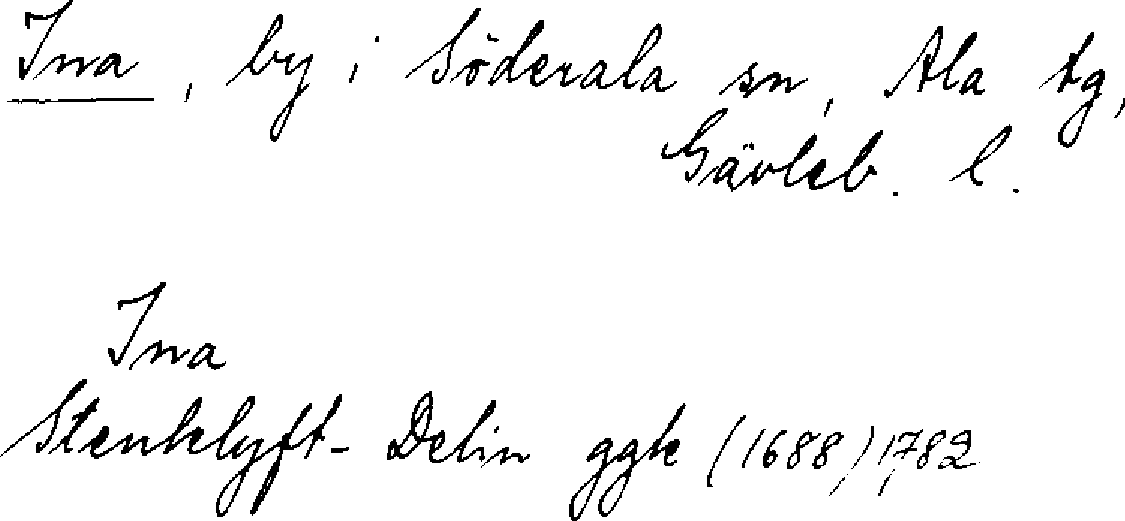 Ina, by i Söderala sn, Ala tg,
Gävleb. l.
Ina
Stenklyft-Delin ggk (1688) 1782